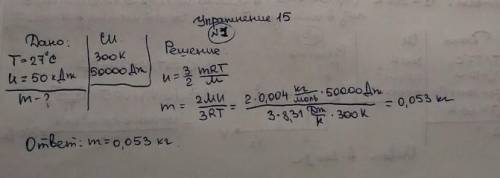 Упражнение 15
№1
Дано: СИ
T=27°C 300К
U=50кДж 50000Дж
m-?
Решение
U=3/2 mRT/M
m = 2MU/3RT = 2·0,004 кг/моль·50000Дж / 3·8,31 Дж/К ·300К = 0,053 кг
Ответ: m=0,053 кг.